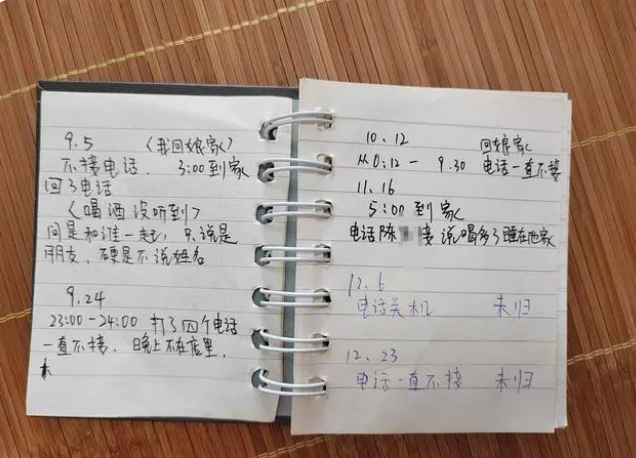 9.5 〈我回娘家〉
不接电话. 3:00到家
回了电话
〈喝酒没听到〉
问是和谁一起, 只说是
朋友, 硬是不说姓名
9.24
23:00-24:00 打了四个电话
一直不接. 晚上不在店里.
10、12 回娘家
从0:12 - 9.30 电话一直不接
11.16
5:00到家
电话陈 接 说喝多了睡在他家
12.6
电话关机 未归
12、23
电话一直不接 未归